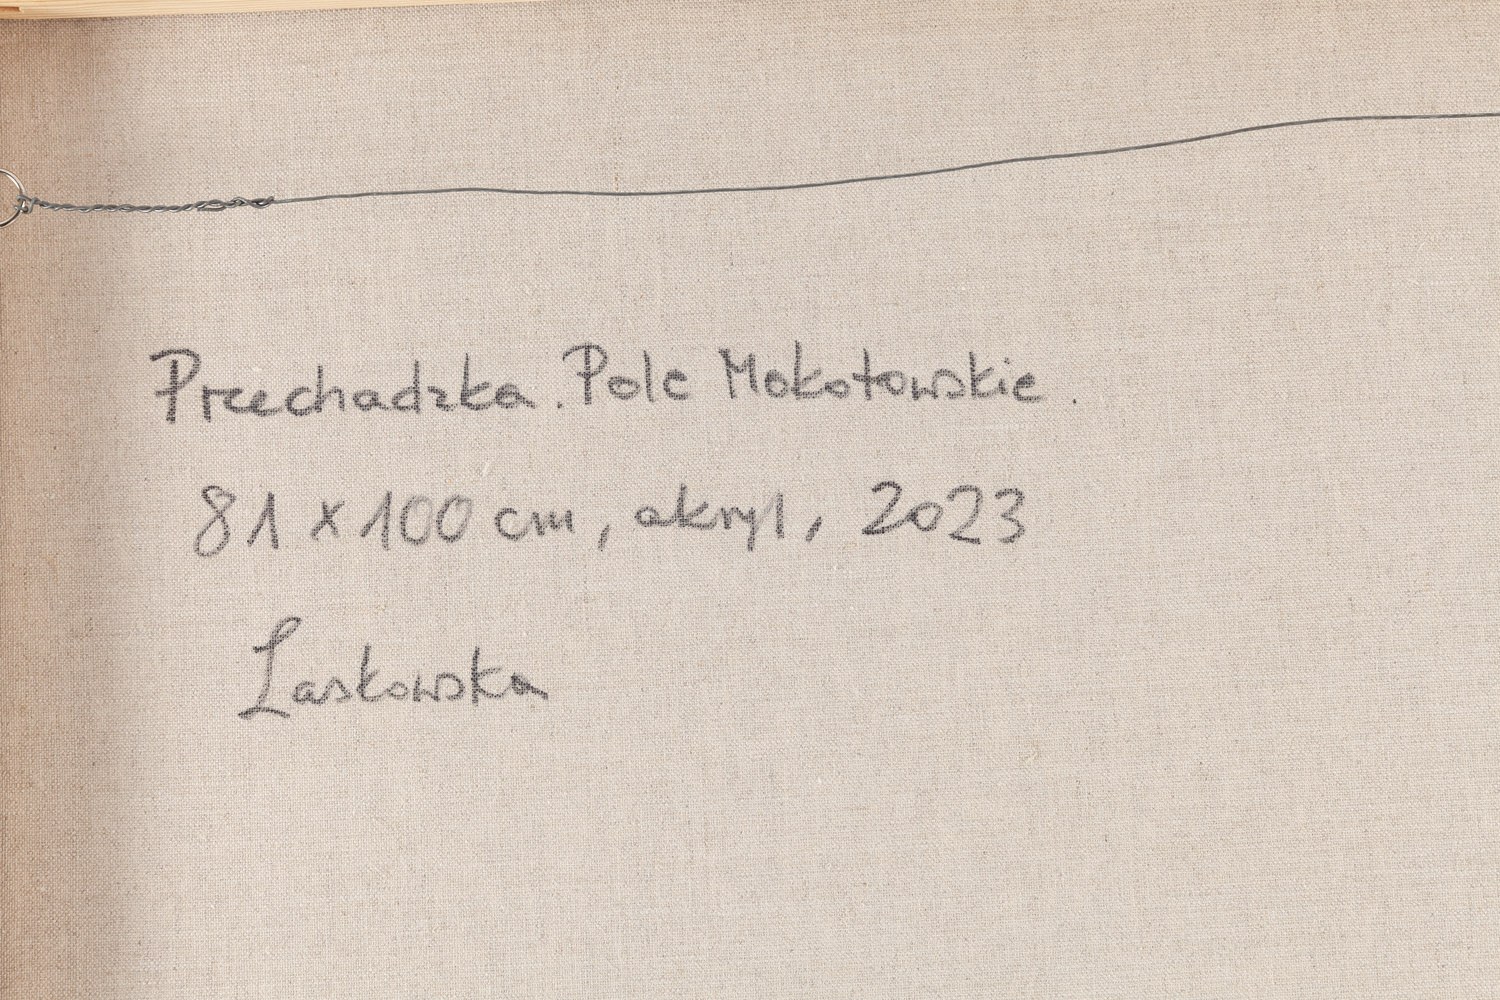 Przechadzka. Pole Mokotowskie.
81 x 100 cm, akryl, 2023
Laskowska